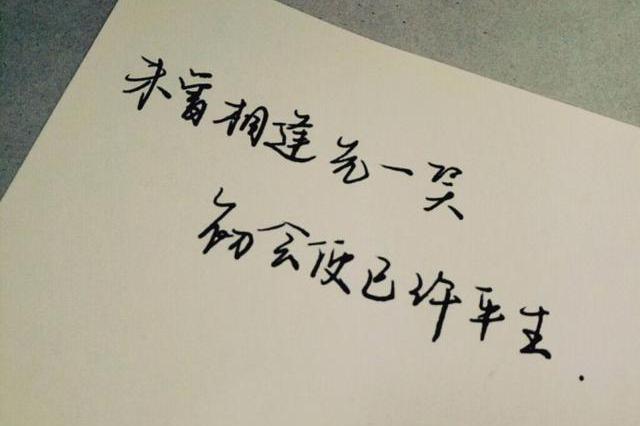 未曾相逢先一笑
初会便已许平生.